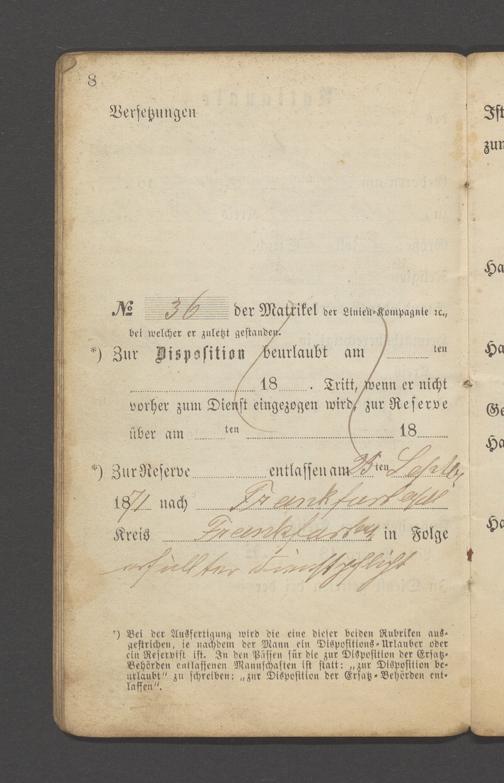 8
Versetzungen
No 36 der Matrikel der Linien-Kompagnie ec.,
bei welcher er zuletzt gestanden.
*) Zur Disposition beurlaubt am ten
18 . Tritt, wenn er nicht
vorher zum Dienst eingezogen wird, zur Reserve
über am ten 18
*) Zur Reserve entlassen am 25 ten
1871 nach Frankfurt
Kreis Frankfurt in Folge
erfüllter Dienstpflicht
*) Bei der Ausfertigung wird die eine dieser beiden Rubriken aus-
gestrichen, je nachdem der Mann ein Dispositions-Urlauber oder
ein Reservist ist. In den Pässen für die zur Disposition der Ersatz-
Behörden entlassenen Mannschaften ist statt: „zur Disposition be-
urlaubt" zu schreiben: „zur Disposition der Ersatz-Behörden ent-
lassen".
Ist
zur
Ha
Ha
Ge
Ha
Ha